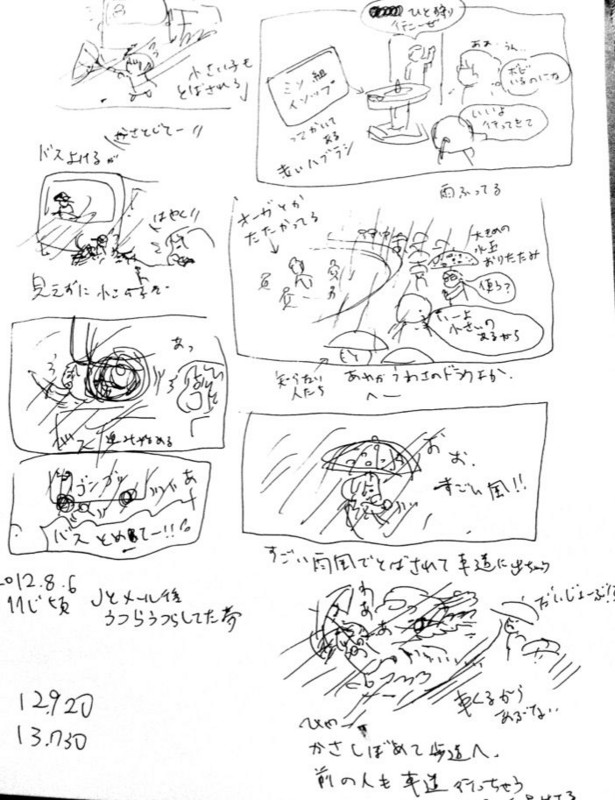 ひと狩り
行こーぜ
ああ…うん…
いいよ
行ってきて
ミソ組
イソップ
ってかいて
ある
赤いハブラシ
雨ふってる
オーガとか
たたかってる
大きめの
水玉
おりたたみ
使う?
いーよ
小さいの
あるから
知らない
人たち
あれがうわさのドラクエか。
へー
おお。
すごい風!!
すごい雨風でとばされて車道に出ちゃう
わあ
あ
だいじょーぶ!?
車くるから
あぶない
ひゃー
かさしぼめて歩道へ。
前の人も車道行っちゃう
小さい子も
とばされる
かさとじてー!!
バスよけるが
はやく!!
あっ
ゴンガッ
あー
バスとめてー!!
2012.8.6
11じ頃
Jとメール後
うつらうつらしてた夢
12.920
13.730